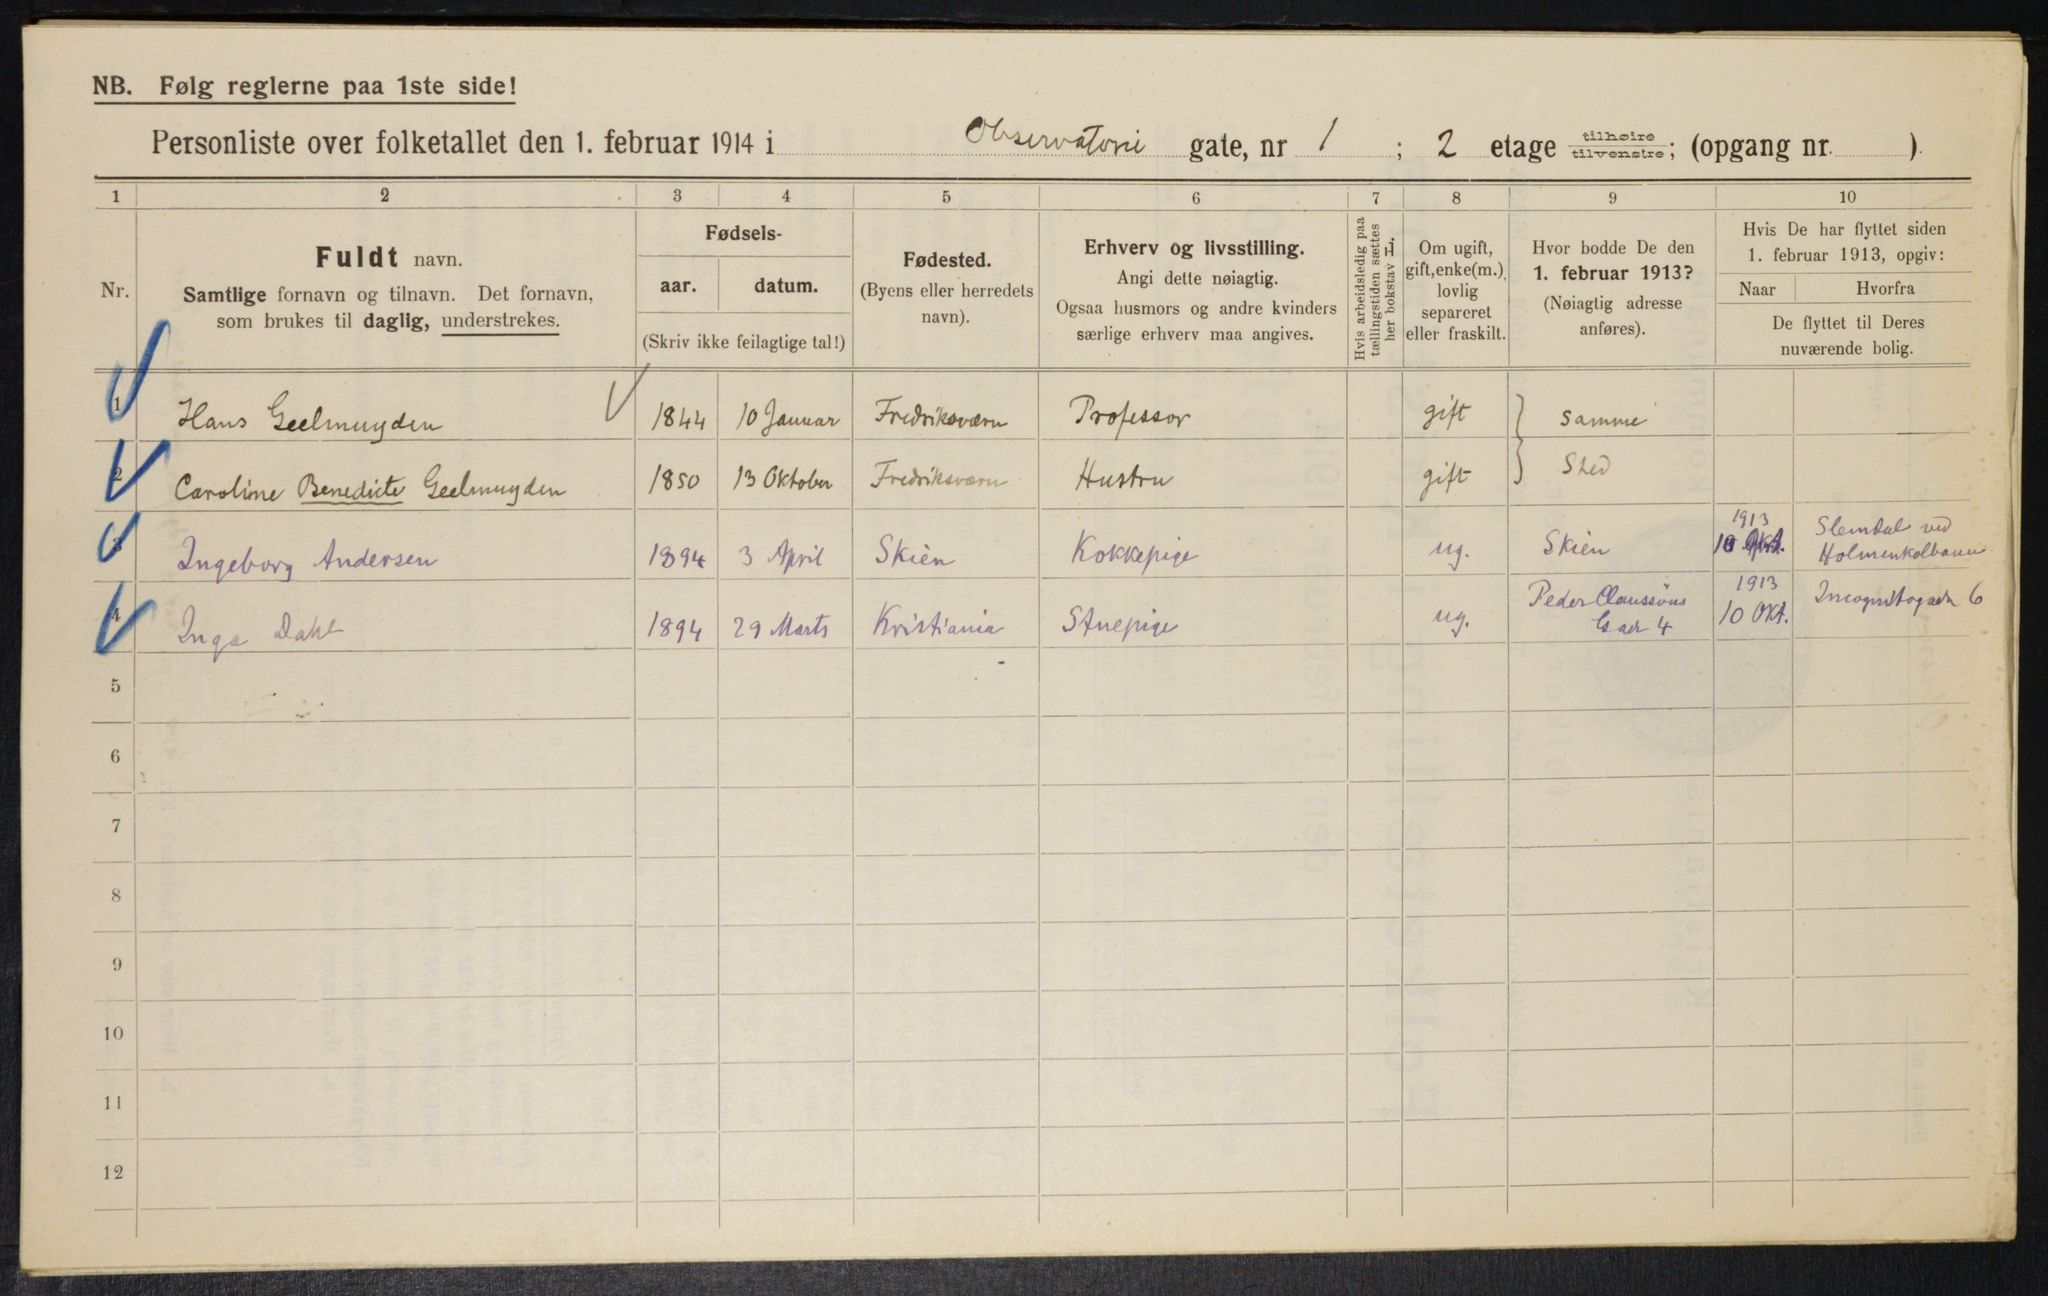 NB. Følg reglerne paa 1ste side!
Personliste over folketallet den 1. februar 1914 i Observatorie gate, nr 1 ; 2 etage tilhøire/tilvenstre; (opgang nr. )
1 2 3 4 5 6 7 8 9 10
Nr.
Fuldt navn.
Samtlige fornavn og tilnavn. Det fornavn,
som brukes til daglig, understrekes.
Fødsels-
aar. datum.
(Skriv ikke feilagtige tal!)
Fødested.
(Byens eller herredets
navn).
Erhverv og livsstilling.
Angi dette nøiagtig.
Ogsaa husmors og andre kvinders
særlige erhverv maa angives.
Hvis arbeidsledig paa
tællingstiden sættes
her bokstav L.
Om ugift,
gift, enke(m.),
lovlig
separeret
eller fraskilt.
Hvor bodde De den
1. februar 1913?
(Nøiagtig adresse
anføres).
Hvis De har flyttet siden
1. februar 1913, opgiv:
Naar Hvorfra
De flyttet til Deres
nuværende bolig.
1 Hans Geelmuyden 1844 10 Januar Fredriksværn Professor gift samme
2 Caroline Benedicte Geelmuyden 1850 13 Oktober Fredriksværn Hustru gift Sted
3 Ingeborg Andersen 1894 3 April Skien Kokkepige ug. Skien 1913 10 Okt. Slemdal ved
Holmenkolbanen
4 Inga Dahl 1894 29 Marts Kristiania Stuepige ug. Peder Claussøns
Gade 4 1913 10 Okt. Incognitogaden 6
5
6
7
8
9
10
11
12